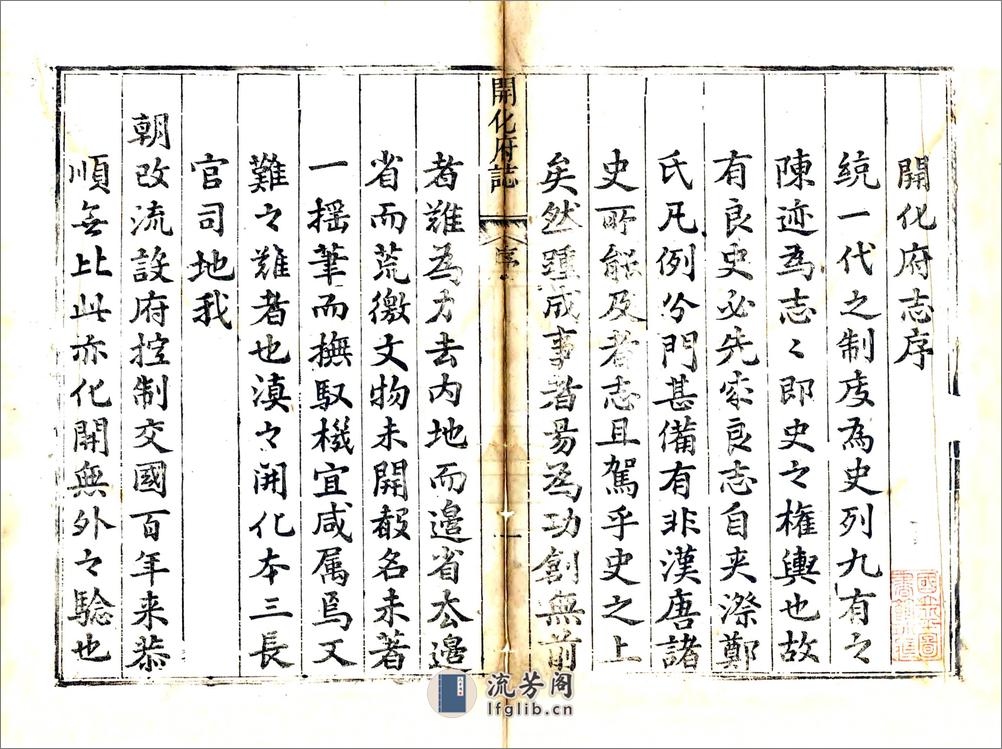 開化府志序
統一代之制度為史列九有之
陳迹為志々即史之權輿也故
有良史必先索良志自夾漈鄭
氏凡例分門甚備有非漢唐諸
史所能及者志且駕乎史之上
矣然踵成事者易為功創無前
開化府誌
序
一
者難為力去内地而邊省去邊
省而荒徼文物未開聲名未著
一摇筆而撫馭機宜咸属焉又
難之難者也滇之開化本三長
官司地我
朝改流設府控制交國百年来恭
順無比此亦化開無外之騐也
流芳阁
lfglib.cn